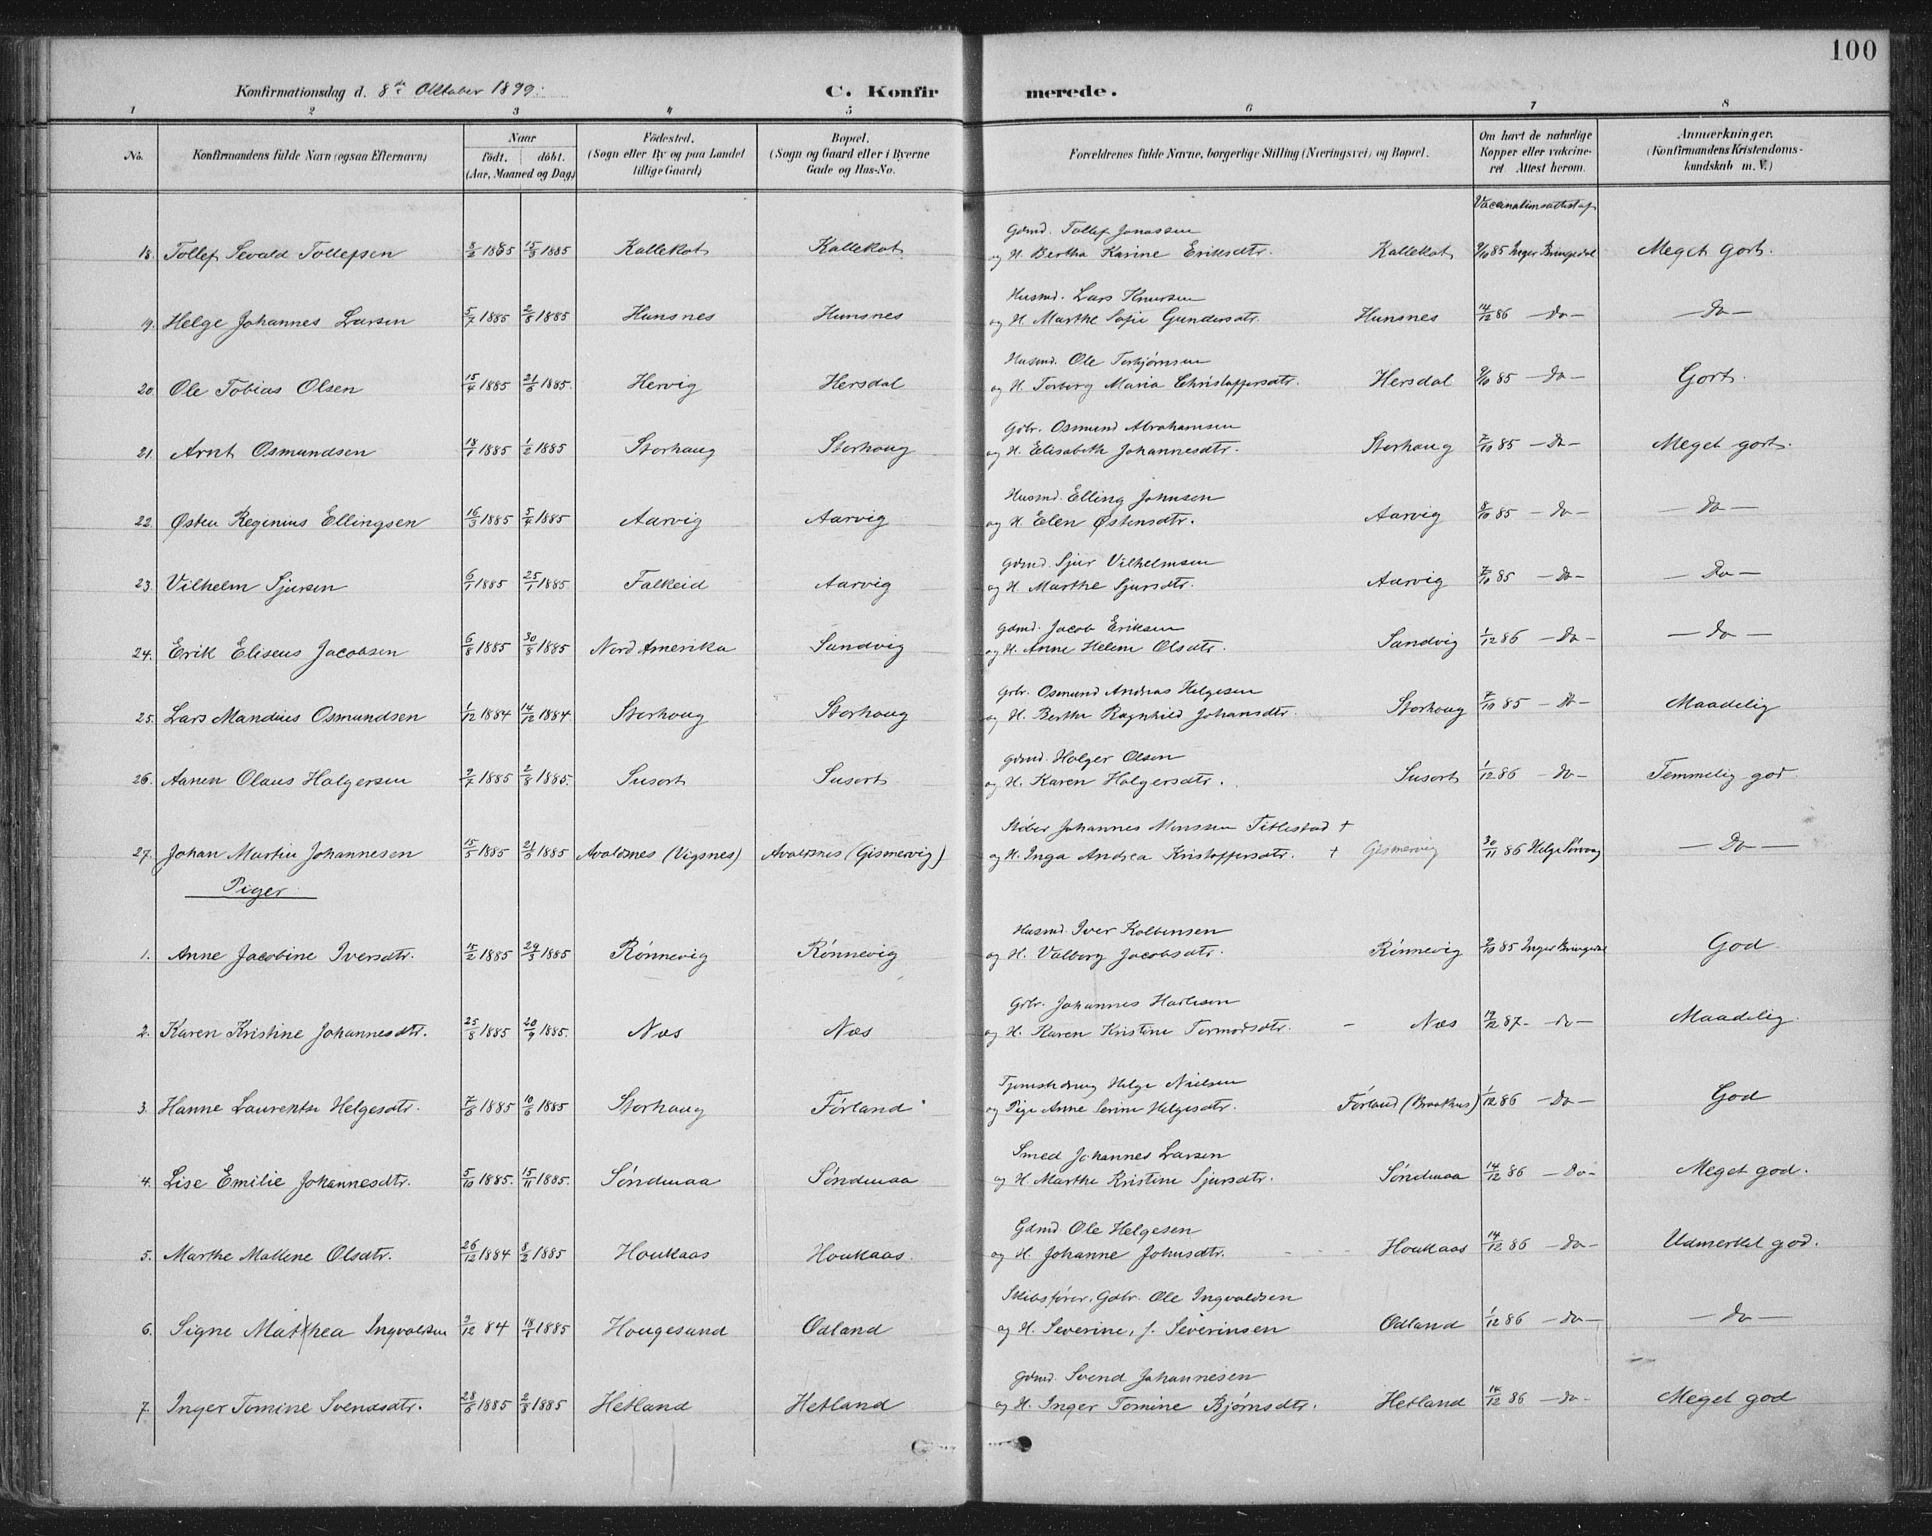 100
Konfirmationsdag d. 8de Oktober 1899. C. Konfirmerede.
1 2 3 4 5 6 7 8
No. Konfirmandens fulde Navn (ogsaa Efternavn) Naar födt. döbt. (Aar, Maaned og Dag) Födested. (Sogn eller By og paa Landet tillige Gaard) Bopæl. (Sogn og Gaard eller i Byerne Gade og Hus-No. Forældrenes fulde Navne, borgerlige Stilling (Næringsvei) og Bopæl. Om havt de naturlige Kopper eller vakcineret Attest herom. Anmærkninger. (Konfirmandens Kristendomskundskab m. V.)
Gdmd. Tollef Jonassen
18. Tollef Sevald Tollefsen 8/2 1885 15/3 1885 Kallekot Kallekot og H. Bertha Karine Eriksdtr. Kallekot 9/10 85 Inger Bringedal Meget godt.
Husmd. Lars Knutsen
19. Helge Johannes Larsen 5/7 1885 2/8 1885 Hunsnes Hunsnes og H. Marthe Sofie Gundersdtr. Hunsnes 14/12 86 – Do – – Do –
Husmd. Ole Torbjørnsen
20. Ole Tobias Olsen 15/4 1885 21/6 1885. Hervig Hersdal og H. Torborg Maria Christoffersdtr. Hersdal 9/10 85 – Do – Godt.
Gdbr. Osmund Abrahamsen
21. Arnt Osmundsen 18/1 1885 1/2 1885 Storhaug Storhoug og H. Elisabeth Johannesdtr. Storhaug 7/10 85 – Do – Meget godt.
Husmd. Elling Johnsen
22. Østen Reginius Ellingsen 16/3 1885 5/4 1885 Aarvig Aarvig og H. Elen Østensdtr. Aarvig 8/10 85 – Do – – Do –
Gdmd. Sjur Vilhelmsen
23. Vilhelm Sjursen 6/1 1885 25/1 1885. Falkeid Aarvig og H. Marthe Sjursdtr. Aarvig 7/10 85 – Do – – Do –
Gdmd. Jacob Eriksen
24. Erik Eliseus Jacobsen 6/8 1885 30/8 1885 Nord Amerika Sandvig og H. Anne Helene Olsdtr. Sandvig 1/12 86 – Do – – Do –
Grbr. Osmund Andreas Helgesen
25. Lars Mandius Osmundsen 1/12 1884 14/12 1884. Storhoug Storhoug og H. Berthe Ragnhild Johansdtr. Storhoug 7/10 85 – Do – Maadelig
Gdmd. Holger Olsen
26. Aanen Olaus Holgersen 9/7 1885 2/8 1885. Susort Susort og H. Karen Holgersdtr. Susort 1/12 86 – Do – Temmelig god
Støber Johannes Monssen Titlestad +
27. Johan Martin Johannesen 15/5 1885 21/5 1885 Avaldsnes (Vigsnes) Avaldsnes (Gismervig) og H. Inga Andrea Kristoffersdtr. + Gismervig 30/11 86 Helge Sørvaag – Do –
Piger
Husmd. Iver Kolbensen
1. Anne Jacobine Iversdtr. 15/2 1885 29/3 1885 Rønnevig Rønnevig og H. Valborg Jacobsdtr. Rønnevig 9/10 85 Inger Bringedal God
Grbr. Johannes
2. Karen Kristine Johannesdtr. 25/8 1885 20/9 1885. Næs Næs og H. Karen Kristine Tormodsdtr. – Næs 14/12 87 – do – Maadelig.
Tjenestedreng Helge Nielsen
3. Hanne Laurentse Helgesdtr. 7/6 1885 10/6 1885 Storhaug Førland og Pige Anne Serine Helgesdtr. Førland (Braathus) 1/12 86 – Do – God
Smed Johannes Larsen
4. Lise Emilie Johannesdtr. 5/10 1885. 15/11 1885. Søndenaa Søndenaa og H. Marthe Kristine Sjursdtr. Søndenaa 14/12 86 – Do – Meget god.
Gdmd. Ole Helgesen
5. Marthe Mallene Olsdtr. 26/12 1884 8/2 1885 Houkaas Houkaas. og H. Johanne Johnsdtr. Houkaas 14/12 86 – Do – Udmerket god.
Skibsfører, Gdbr. Ole Ingvaldsen
6. Signe Mathea Ingvaldsen 3/12 84 18/1 1885 Hougesund Odland og H. Severine, f. Severinsen Odland 1/12 86 – do – – Do –
Gdmd. Svend Johannesen
7. Inger Tomine Svendsdtr. 28/6 1885 2/8 1885 Hetland Hetland og H. Inger Tomine Bjørnsdtr. Hetland 14/12 86 – do – Meget god